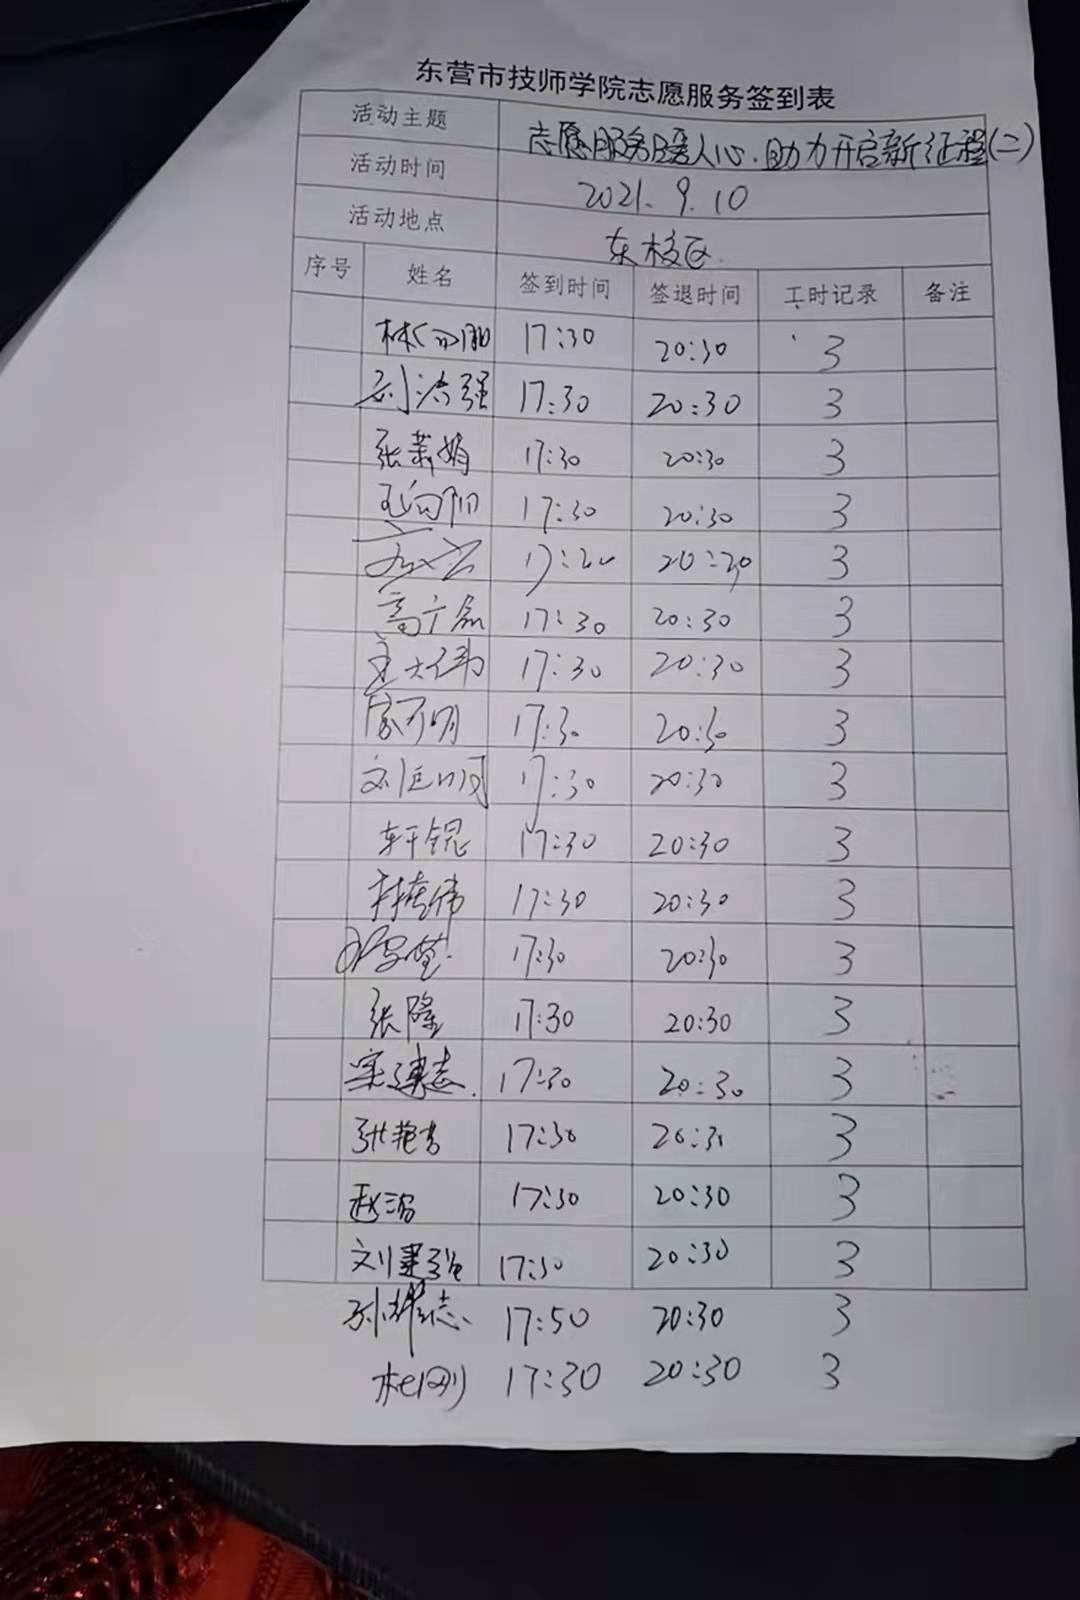 东营市技师学院志愿服务签到表
活动主题 志愿服务暖人心.助力开启新征程(二)
活动时间 2021.9.10
活动地点 东校区.
序号 姓名 签到时间 签退时间 工时记录 备注
17:30 20:30 3
17:30 20:30 3
张 娟 17:30 20:30 3
王向阳 17:30 20:30 3
3
高广 17:30 20:30 3
大伟 17:30 20:30 3
明 17:30 20:30 3
刘 17:30 20:30 3
轩锟 17:30 20:30 3
伟 17:30 20:30 3
17:30 20:30 3
张隆 17:30 20:30 3
建志. 17:30 20:30 3
张艳 17:30 20:30 3
赵 17:30 20:30 3
刘建强 17:30 20:30 3
孙 志. 17:50 20:30 3
杜刚 17:30 20:30 3